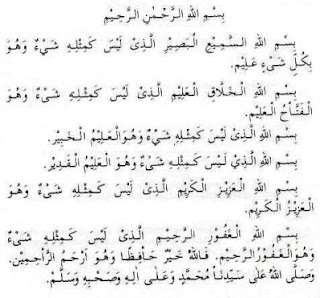 بِسْمِ اللهِ الرَّحْمٰنِ الرَّحِيْمِ
بِسْمِ اللهِ السَّمِيْعِ الْبَصِيْرِ الَّذِىْ لَيْسَ كَمِثْلِهِ شَىْءٌ وَهُوَ
بِكُلِّ شَىْءٍ عَلِيْمٌ.
بِسْمِ اللهِ الْخَلَّاقِ الْعَلِيْمِ الَّذِىْ لَيْسَ كَمِثْلِهِ شَىْءٌ وَهُوَ
الْفَتَّاحُ الْعَلِيْمُ.
بِسْمِ اللهِ الَّذِىْ لَيْسَ كَمِثْلِهِ شَىْءٌ وَهُوَ الْعَلِيْمُ الْخَبِيْرُ.
بِسْمِ اللهِ الَّذِىْ لَيْسَ كَمِثْلِهِ شَىْءٌ وَهُوَ الْعَلِيْمُ الْقَدِيْرُ.
بِسْمِ اللهِ الْعَزِيْزِ الْكَرِيْمِ الَّذِىْ لَيْسَ كَمِثْلِهِ شَىْءٌ وَهُوَ
الْعَزِيْزُ الْكَرِيْمُ.
بِسْمِ اللهِ الْغَفُوْرِ الرَّحِيْمِ الَّذِىْ لَيْسَ كَمِثْلِهِ شَىْءٌ
وَهُوَ الْغَفُوْرُ الرَّحِيْمُ. فَاللهُ خَيْرٌ حَافِظًا وَهُوَ أَرْحَمُ الرَّاحِمِيْنَ.
وَصَلَّى اللهُ عَلَى سَيِّدِنَا مُحَمَّدٍ وَعَلَى اٰلِهِ وَصَحْبِهِ وَسَلَّمَ.